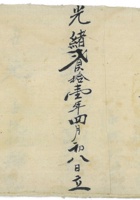 光緒貳拾壹年四月初八日立